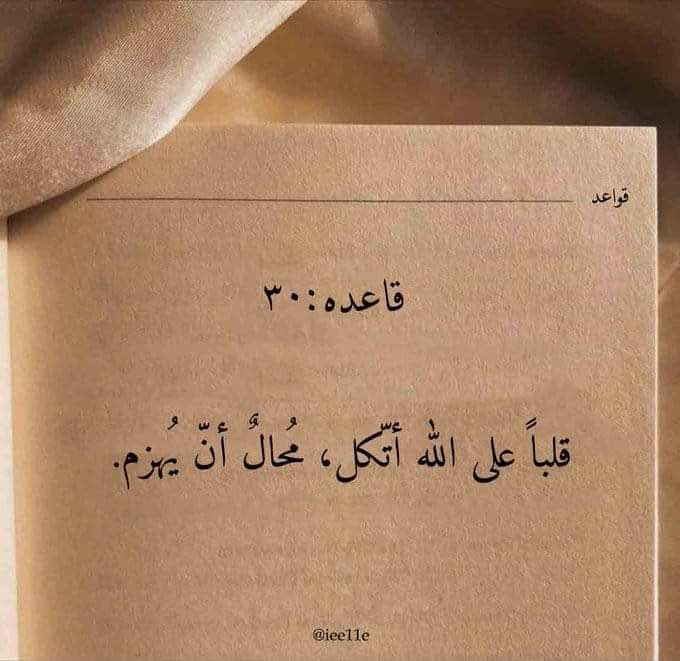 قواعد
قاعده:٣٠
قلباً على الله أتّكل، مُحالٌ أنّ يُهزم.
@iee11e